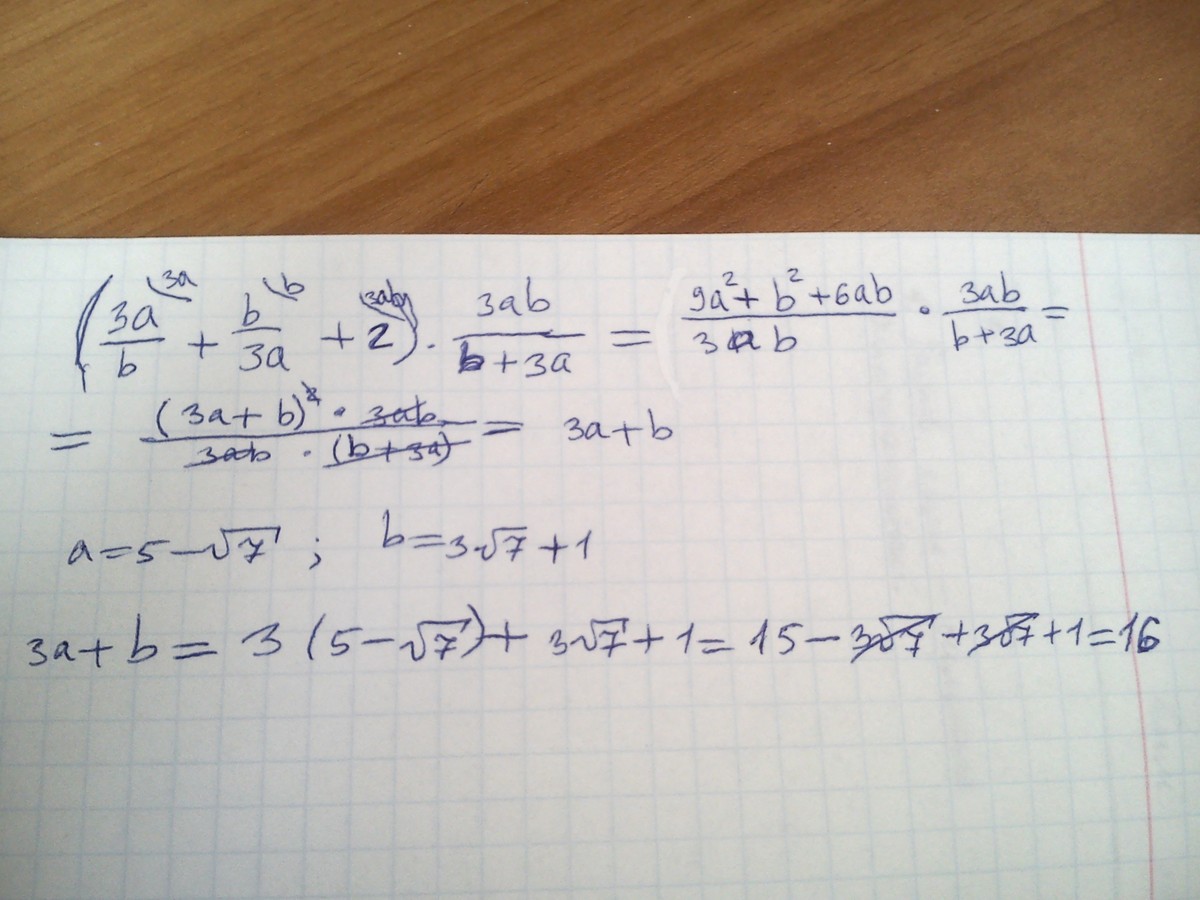 (3a/b \3a + b/3a \b + 2 \3ab) · 3ab/(b + 3a) = (9a² + b² + 6ab)/(3ab) · 3ab/(b + 3a) =
= ((3a + b)² · 3ab)/(3ab · (b + 3a)) = 3a + b
a = 5 - √7 ; b = 3√7 + 1
3a + b = 3 (5 - √7) + 3√7 + 1 = 15 - 3√7 + 3√7 + 1 = 16